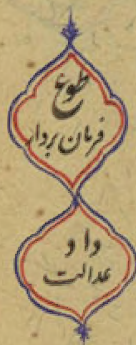 طوع
فرمان بردار
داد
عدالت